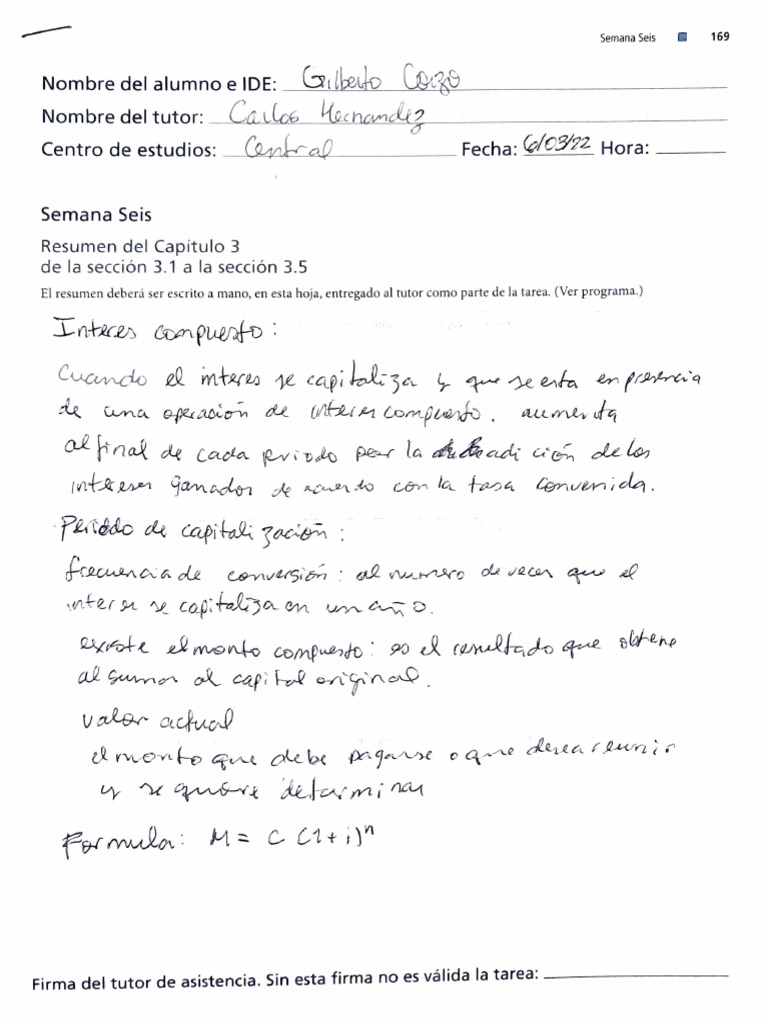 Semana Seis 169
Nombre del alumno e IDE: Gilberto Corzo
Nombre del tutor: Carlos Hernandez
Centro de estudios: Central Fecha: 6/03/22 Hora:
Semana Seis
Resumen del Capítulo 3
de la sección 3.1 a la sección 3.5
El resumen deberá ser escrito a mano, en esta hoja, entregado al tutor como parte de la tarea. (Ver programa.)
Interes compuesto:
Cuando el interes se capitaliza y que se esta en presencia
de una operación de interes compuesto. aumenta
al final de cada priodo por la adición de los
intereses ganados de acuerdo con la tasa convenida.
Periódo de capitalización:
frecuencia de conversión: al numero de veces que el
interes se capitaliza en un año.
existe el monto compuesto: es el resultado que obtene
al sumar al capital original.
valor actual
el monto que debe pagarse o que desea reunir
y se quiere determinar
Formula: M = C (1+i)ⁿ
Firma del tutor de asistencia. Sin esta firma no es válida la tarea: